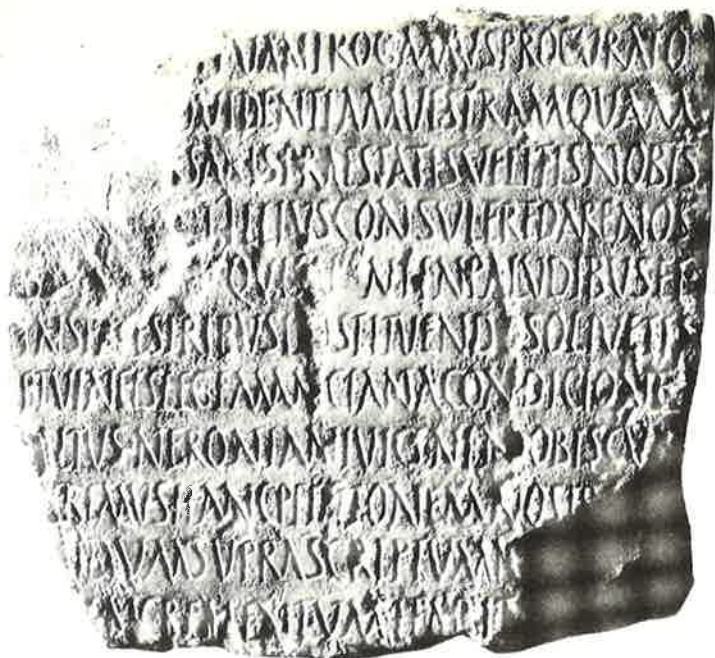 ROGAMUSPROCURATO
VIDENTIAMVESTRAMQUAM
SARISPRAESTATISVELITISNOBIS
ILLIUSCONSULEREDARENOS
QUI NTINPALUDIBUSET
INSILVESTRIBUSI STITUENDISOLIVETIS
ETVINEISLEGEMANCIANACONDICIONE
LTUSNERONIANIVICINI OBISCU
REMUSHANCPETITIONEMNOS
NDUMSUPRASCRIPTUMN
NCREMENTUM